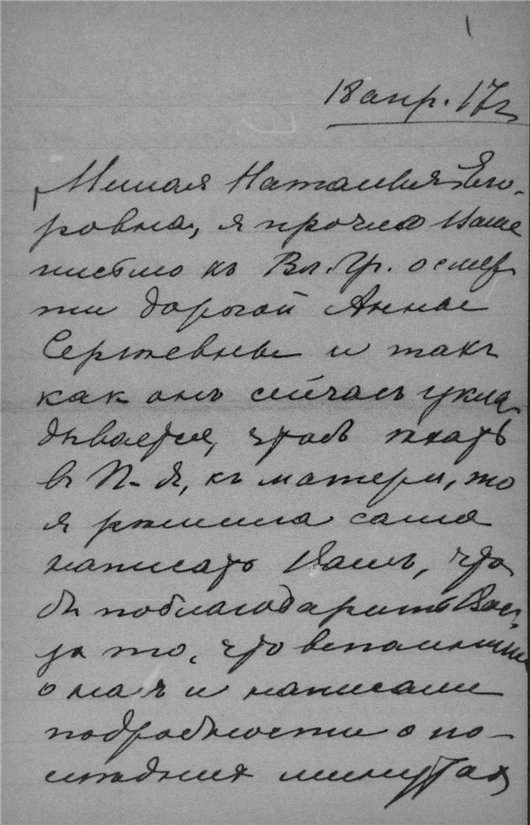 18 апр. 17 г.
Милая Наталья Его-
ровна, я прочла Ваше
письмо къ Вл. Гр. о смер-
ти дорогой Анны
Сергѣевны и такъ
какъ онъ сейчасъ укла-
дывается, чтобъ ѣхать
в П-д, къ матери, то
я рѣшила сама
написать Вамъ, что
бы поблагодарить Вас
за то, что вспомнили
о насъ и написали
подробности о по-
слѣднихъ минутах